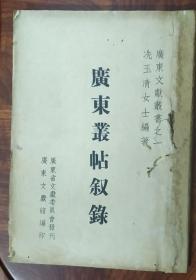 廣東文獻叢書之一
冼玉清女士編著
廣東叢帖叙錄
廣東省文獻委員會發刊
廣東文獻館編印